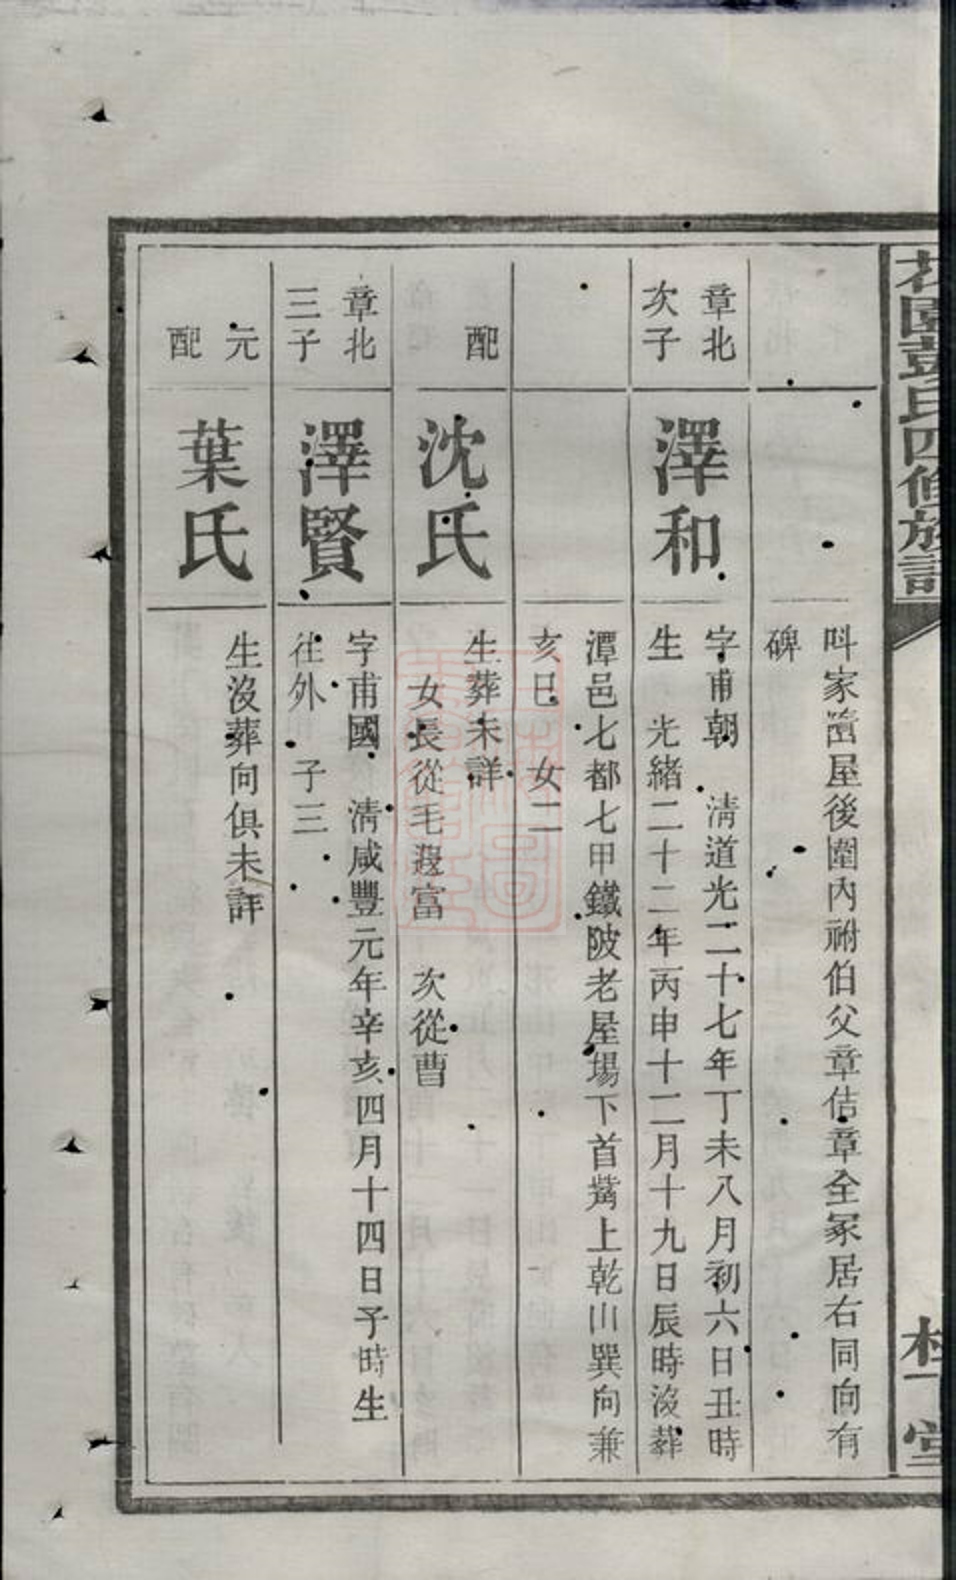 花園彭氏四修族譜
桂 堂
呌家嵤屋後園內祔伯父章佶章全冢居右同向有
碑
章北
次子
澤和
字甫朝 清道光二十七年丁未八月初六日丑時
生 光緒二十二年丙申十二月十九日辰時沒葬
潭邑七都七甲鐵陂老屋場下首觜上乾山巽向兼
亥巳 女二
配
沈氏
生葬未詳
女長從毛 富 次從曹
章北
三子
澤賢
字甫國 清咸豐元年辛亥四月十四日子時生
往外 子三
元
配
葉氏
生沒葬向俱未詳